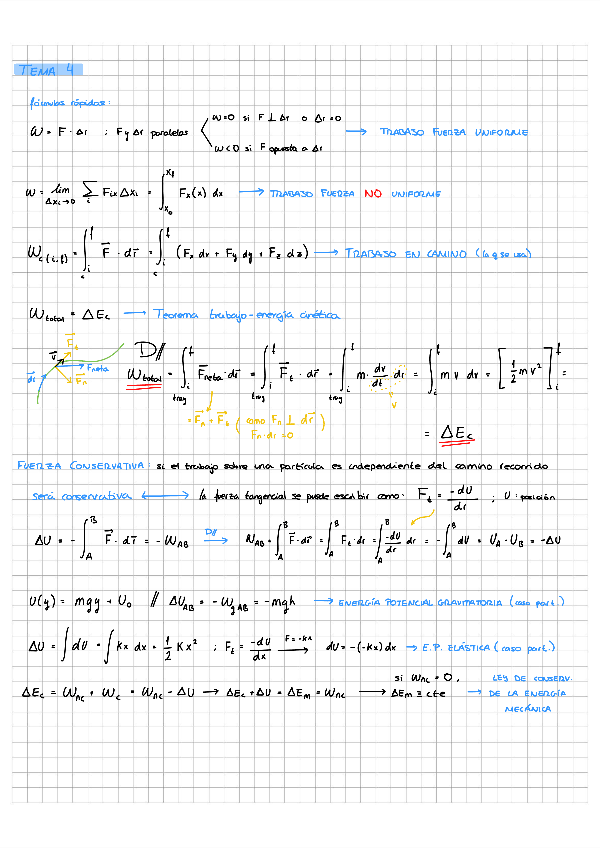 TEMA 4
fórmulas rápidas:
W=0 si F ⊥ Δr o Δr=0
W = F · Δr ; F y Δr paralelas → TRABAJO FUERZA UNIFORME
W<0 si F opuesta a Δr
W = lim Δxi→0 Σi Fix Δxi = ∫x0^xf Fx(x) dx → TRABAJO FUERZA NO UNIFORME
Wc(i,f) = ∫i^f c F⃗ · dr⃗ = ∫i^f c (Fx dx + Fy dy + Fz dz) → TRABAJO EN CAMINO (la q se usa)
Wtotal = ΔEc → Teorema trabajo-energía cinética
F⃗t
v⃗ Fneta
dr⃗ F⃗n
D//
Wtotal = ∫i^f tray F⃗neta·dr⃗ = ∫i^f F⃗t · dr⃗ = ∫i^f tray m· dv/dt dr = ∫i^f m v dv = [1/2 m v²]i^f =
v
v
= F⃗n + F⃗t (como F⃗n ⊥ dr⃗
Fn·dr = 0)
= ΔEc
FUERZA CONSERVATIVA: si el trabajo sobre una partícula es independiente del camino recorrido
será conservativa ⟷ la fuerza tangencial se puede escribir como: Ft = -dU/dr ; U: posición
ΔU = - ∫A^B F⃗ · dr⃗ = - WAB D// → WAB = ∫A^B F⃗·dr⃗ = ∫A^B Ft·dr = ∫A^B -dU/dr dr = - ∫A^B dU = UA - UB = -ΔU
U(y) = mgy + U0 // ΔUAB = - WgAB = -mgh → ENERGÍA POTENCIAL GRAVITATORIA (caso part.)
ΔU = ∫dU = ∫kx dx = 1/2 Kx² ; Ft = -dU/dx F=-kx → dU = -(-Kx)dx → E.P. ELÁSTICA (caso part.)
ΔEc = Wnc + Wc = Wnc - ΔU → ΔEc + ΔU = ΔEm = Wnc → si Wnc = 0, ΔEm ≡ cte → LEY DE CONSERV.
DE LA ENERGÍA
MECÁNICA